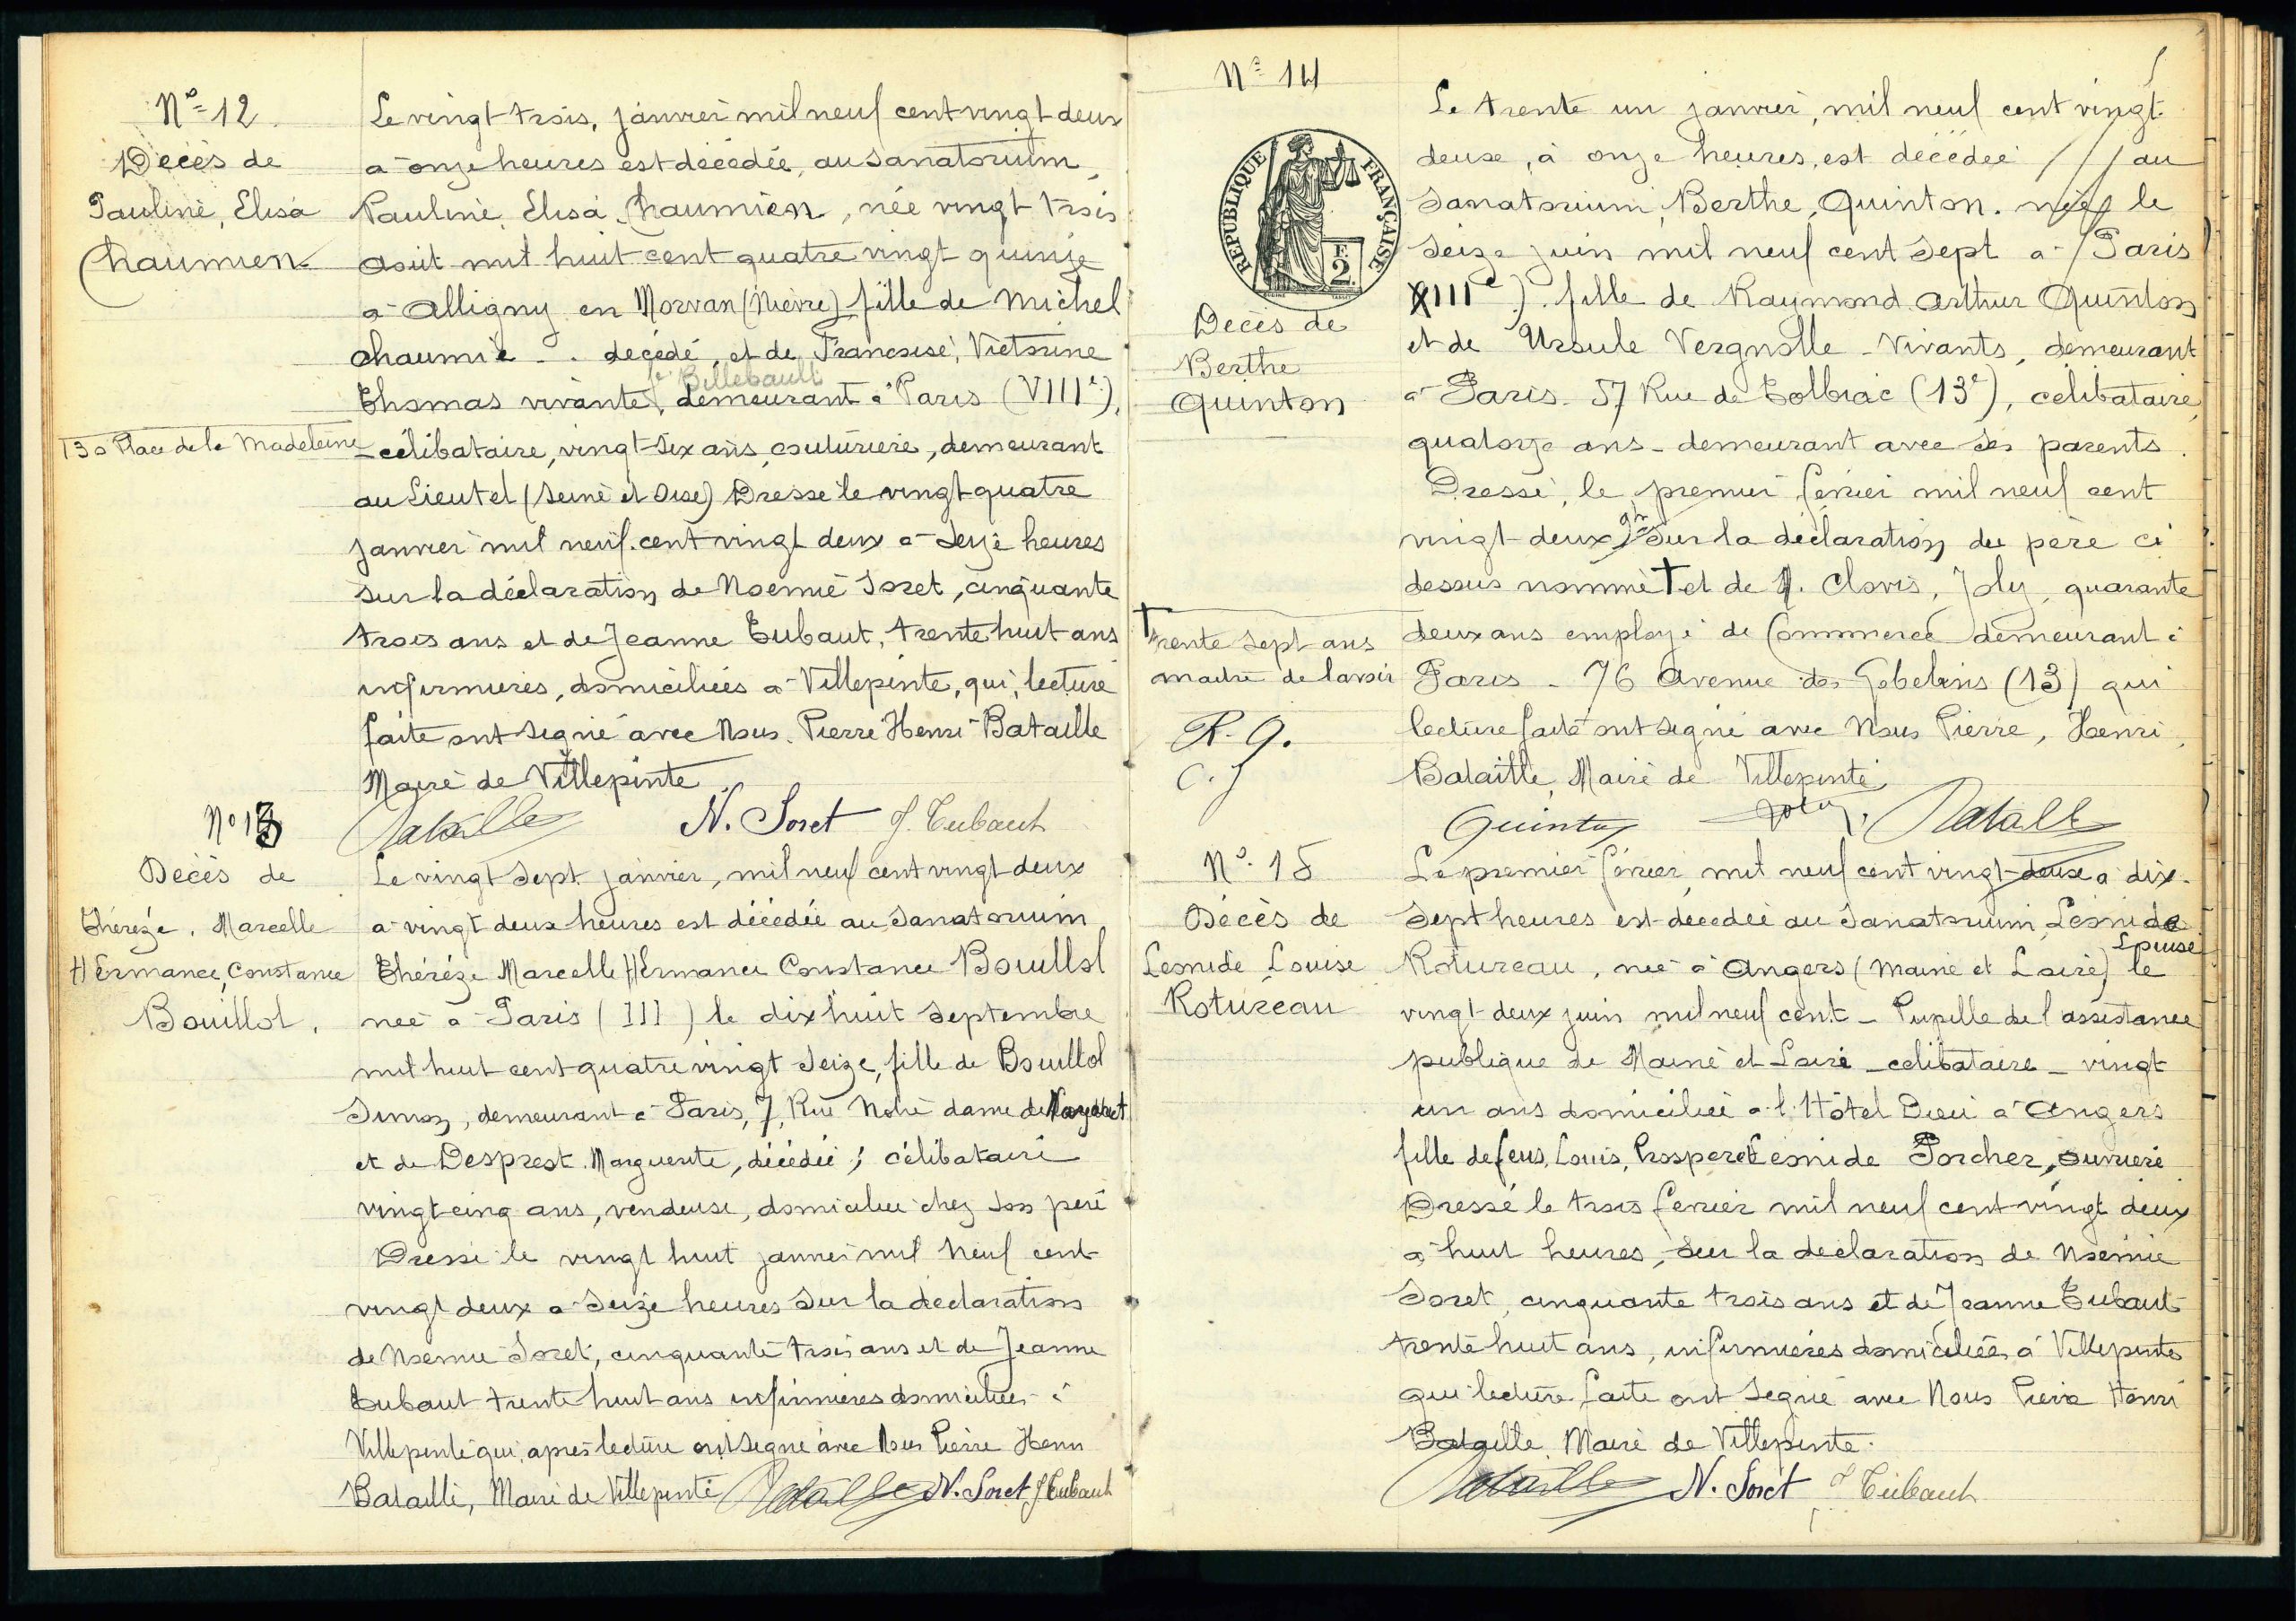 Nº 12
Décès de
Pauline, Elisa
Chaumien
Le vingt trois, janvier mil neuf cent vingt deux
à onze heures est décédée, au Sanatorium,
Pauline, Elisa, Chaumien, née vingt trois
août mil huit cent quatre vingt quinze
à Alligny en Morvan (Nièvre) fille de Michel
Chaumie . . décédé, et de Françoise, Victorine
Billebault
Thomas vivante, demeurant à Paris (VIIIe),
130 Place de la Madeleine
célibataire, vingt-six ans, couturière, demeurant
au Lieutel (Seine et Oise) Dressé le vingt quatre
janvier mil neuf cent vingt deux à seize heures
sur la déclaration de Noémie Soret, cinquante
trois ans et de Jeanne Tubaut, trente huit ans
infirmières, domiciliées à Villepinte, qui, lecture
faite ont signé avec Nous. Pierre Henri Bataille
Maire de Villepinte.
Bataille N. Soret J. Tubaut
Nº 13
Décès de
Thérèze, Marcelle
Hermance, Constance
Bouillot,
Le vingt sept janvier, mil neuf cent vingt deux
à vingt deux heures est décédée au Sanatorium
Thérèze Marcelle Hermance Constance Bouillot
née à Paris (III) le dix huit septembre
mil huit cent quatre vingt seize, fille de Bouillot
Simon, demeurant à Paris, 7, Rue Notre dame de Nazareth
et de Desprest Marguerite, décédée ; célibataire
vingt cinq ans, vendeuse, domiciliée chez son père
Dressé le vingt huit janvier mil neuf cent
vingt deux à seize heures sur la déclaration
de Noémie Soret, cinquante trois ans et de Jeanne
Tubaut trente huit ans infirmières domiciliées à
Villepinte qui après lecture ont signé avec Nous Pierre Henri
Bataille, Maire de Villepinte Bataille N. Soret J Tubaut
Nº 14
REPUBLIQUE FRANÇAISE
F. 2.
Décès de
Berthe
Quinton
Le trente un janvier, mil neuf cent vingt
deux, à onze heures, est décédée // au
Sanatorium, Berthe, Quinton. née le
seize juin mil neuf cent sept à Paris
XIIIe). fille de Raymond Arthur Quinton
et de Ursule Vergnolle - vivants, demeurant
à Paris. 57 Rue de Tolbiac (13e), célibataire,
quatorze ans - demeurant avec ses parents.
Dressé, le premier février mil neuf cent
vingt deux 9h sur la déclaration du père ci
dessus nommé † et de M. Clovis, Joly, quarante
† trente sept ans
maître de lavoir
R. Q.
C. J
deux ans employé de Commerce demeurant à
Paris - 76 Avenue des Gobelins (13) qui
lecture faite ont signé avec Nous Pierre, Henri,
Bataille, Maire de Villepinte
Quinton Joly, Bataille
Nº 15
Décès de
Léonide Louise
Rotureau
Le premier février mil neuf cent vingt-deux à dix-
sept heures est décédée au Sanatorium Léonide
Louise
Rotureau, née à Angers (Maine et Loire) le
vingt deux juin mil neuf cent - Pupille de l'assistance
publique de Maine et Loire - célibataire - vingt
un ans domiciliée à l'Hôtel Dieu à Angers
fille de feus, Louis, Prosper et Léonide Porcher, ouvrière
Dressé le trois février mil neuf cent vingt deux
à huit heures, sur la déclaration de Noémie
Soret, cinquante trois ans et de Jeanne Tubaut
trente huit ans, infirmières domiciliées à Villepinte
qui lecture faite ont signé avec Nous Pierre Henri
Bataille Maire de Villepinte.
Bataille N. Soret J Tubaut